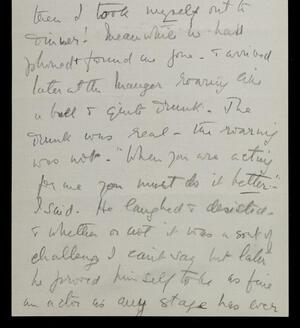 then I took myself out to
dinner! Meanwhile he had
phoned & found me gone - & arrived
later at the Manger roaring like
a bull & quite drunk. The
drunk was real - the roaring
was not. "When you are acting
for me you must do it better."
I said. He laughed & desisted -
& whether or not it was a sort of
challenge I can't say but later
he proved himself to be as fine
an actor as any stage has ever